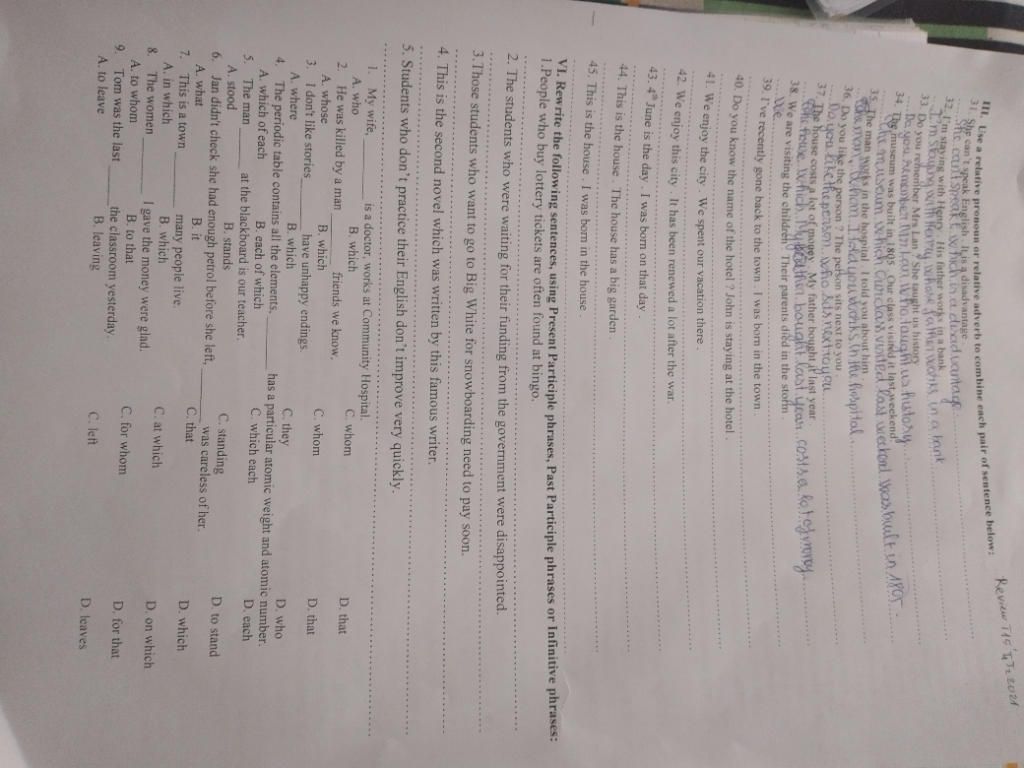 Review T15
III. Use a relative pronoun or relative adverb to combine each pair of sentence below:
31. She can't speak English . It is a disadvantage .
She can't speak English which is a disadvantage.
32. I'm staying with Henry . His father works in a bank
I'm staying with Henry whose father works in a bank
33. Do you remember Mrs Lan ? She taught us history
Do you remember Mrs Lan who taught us history
34. The museum was built in 1895 . Our class visited it last weekend
The museum which our class visited last weekend was built in 1895.
35. The man works in the hospital . I told you about him
The man, whom I told you works in the hospital.
36. Do you like the person ? The person sits next to you
Do you like the person who sits next to you
37. The house costs a lot of money . My father bought it last year.
The house which my father bought last year costs a lot of money.
38. We are visiting the children . Their parents died in the storm
We
39. I've recently gone back to the town . I was born in the town
40. Do you know the name of the hotel ? John is staying at the hotel .
41. We enjoy the city . We spent our vacation there .
42. We enjoy this city . It has been renewed a lot after the war.
43. 4th June is the day . I was born on that day .
44. This is the house . The house has a big garden
45. This is the house . I was born in the house .
VI. Rewrite the following sentences, using Present Participle phrases, Past Participle phrases or Infinitive phrases:
1.People who buy lottery tickets are often found at bingo.
2. The students who were waiting for their funding from the government were disappointed.
3.Those students who want to go to Big White for snowboarding need to pay soon.
4. This is the second novel which was written by this famous writer.
5. Students who don't practice their English don't improve very quickly.
1. My wife, ______ is a doctor, works at Community Hospital.
A. who B. which C. whom D. that
2. He was killed by a man ______ friends we know.
A. whose B. which C. whom D. that
3. I don't like stories ______ have unhappy endings.
A. where B. which C. they D. who
4. The periodic table contains all the elements, ______ has a particular atomic weight and atomic number.
A. which of each B. each of which C. which each D. each
5. The man ______ at the blackboard is our teacher.
A. stood B. stands C. standing D. to stand
6. Jan didn't check she had enough petrol before she left, ______ was careless of her.
A. what B. it C. that D. which
7. This is a town ______ many people live.
A. in which B. which C. at which D. on which
8. The women ______ I gave the money were glad.
A. to whom B. to that C. for whom D. for that
9. Tom was the last ______ the classroom yesterday.
A. to leave B. leaving C. left D. leaves